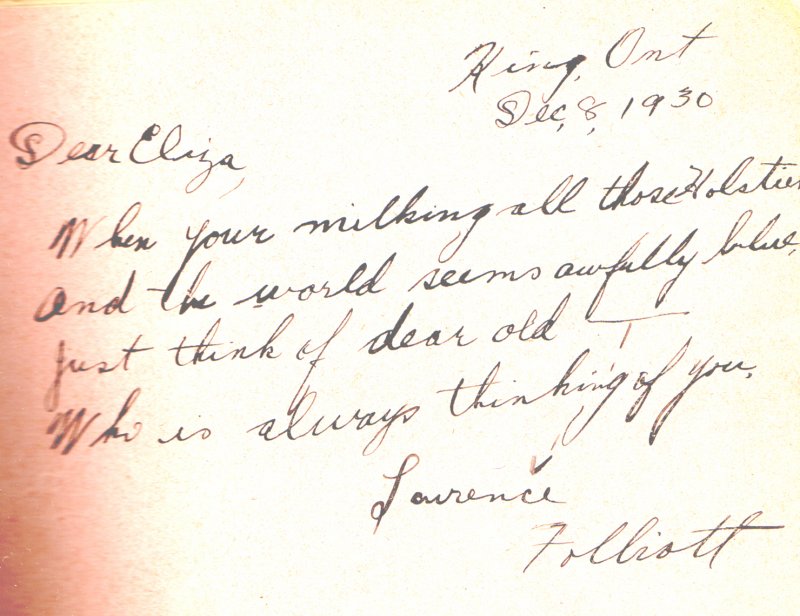 King, Ont
Dec, 8, 1930
Dear Eliza,
When your milking all those Holstien
And the world seems awfully blue,
Just think of dear old —T—
Who is always thinking of you.
Lawrence
Folliott